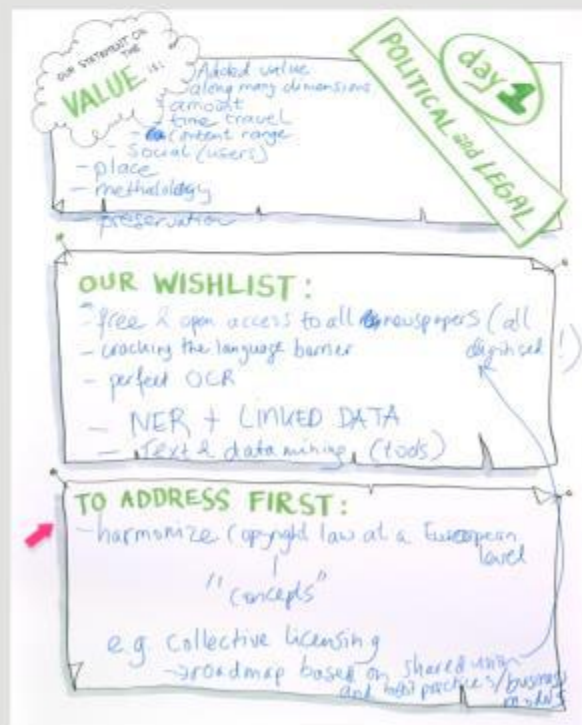 OUR STATEMENT ON
THE
VALUE is:
Added value
along many dimensions
- amount
- time travel
- content range
- social (users)
- place
- methodology
- preservation
day 1
POLITICAL and LEGAL
OUR WISHLIST:
- free & open access to all newspapers (all
digitised!)
- cracking the language barrier
- perfect OCR
- NER + LINKED DATA
- Text & data mining (tools)
TO ADDRESS FIRST:
- harmonize copyright law at a European
level
"concepts"
e.g. collective licensing
→ roadmap based on shared vision
and best practices/business
models